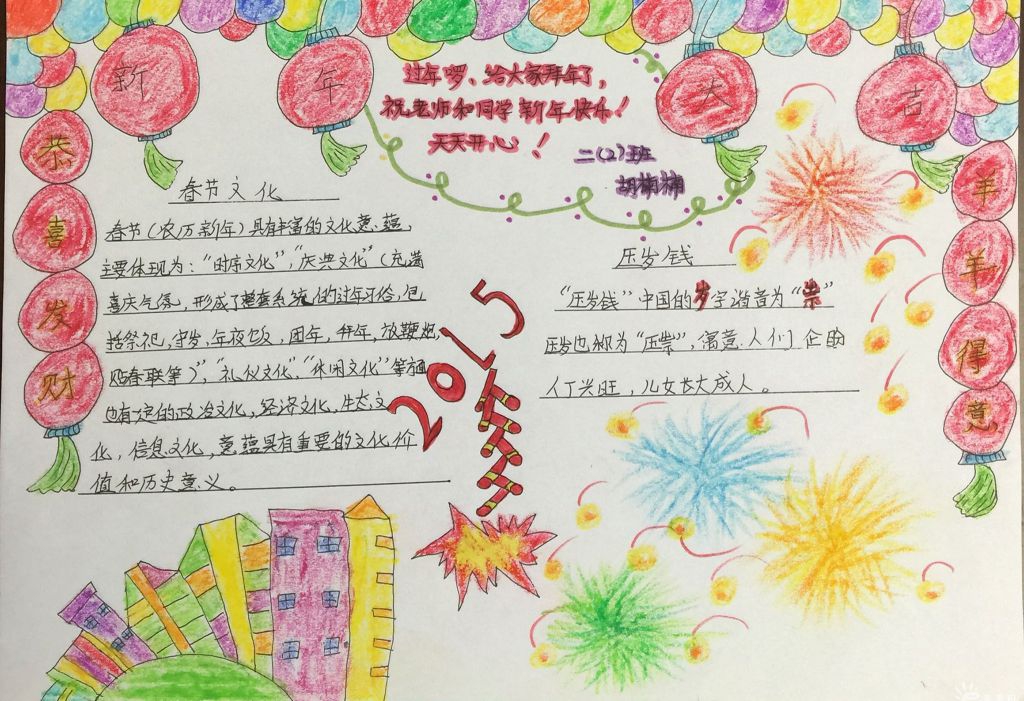 新年大吉
恭喜发财
过年啰、给大家拜年了,
祝老师和同学新年快乐!
天天开心!
二(2)班
胡楠楠
春节文化
春节(农历新年)具有丰富的文化意蕴,
主要体现为:“时序文化”,“庆典文化”(充满
喜庆气氛,形成了整套系统的过年习俗,包
括祭祀,守岁,年夜饭,团年,拜年,放鞭炮,
贴春联等)”,“礼仪文化”,“休闲文化”等方面
也有一定的政治文化,经济文化,生态文
化,信息文化,意蕴具有重要的文化价
值和历史意义。
2015
压岁钱
“压岁钱”中国的岁字谐音为“祟”
压岁也称为“压祟”,寓意人们企盼
人丁兴旺,儿女长大成人。
羊羊得意